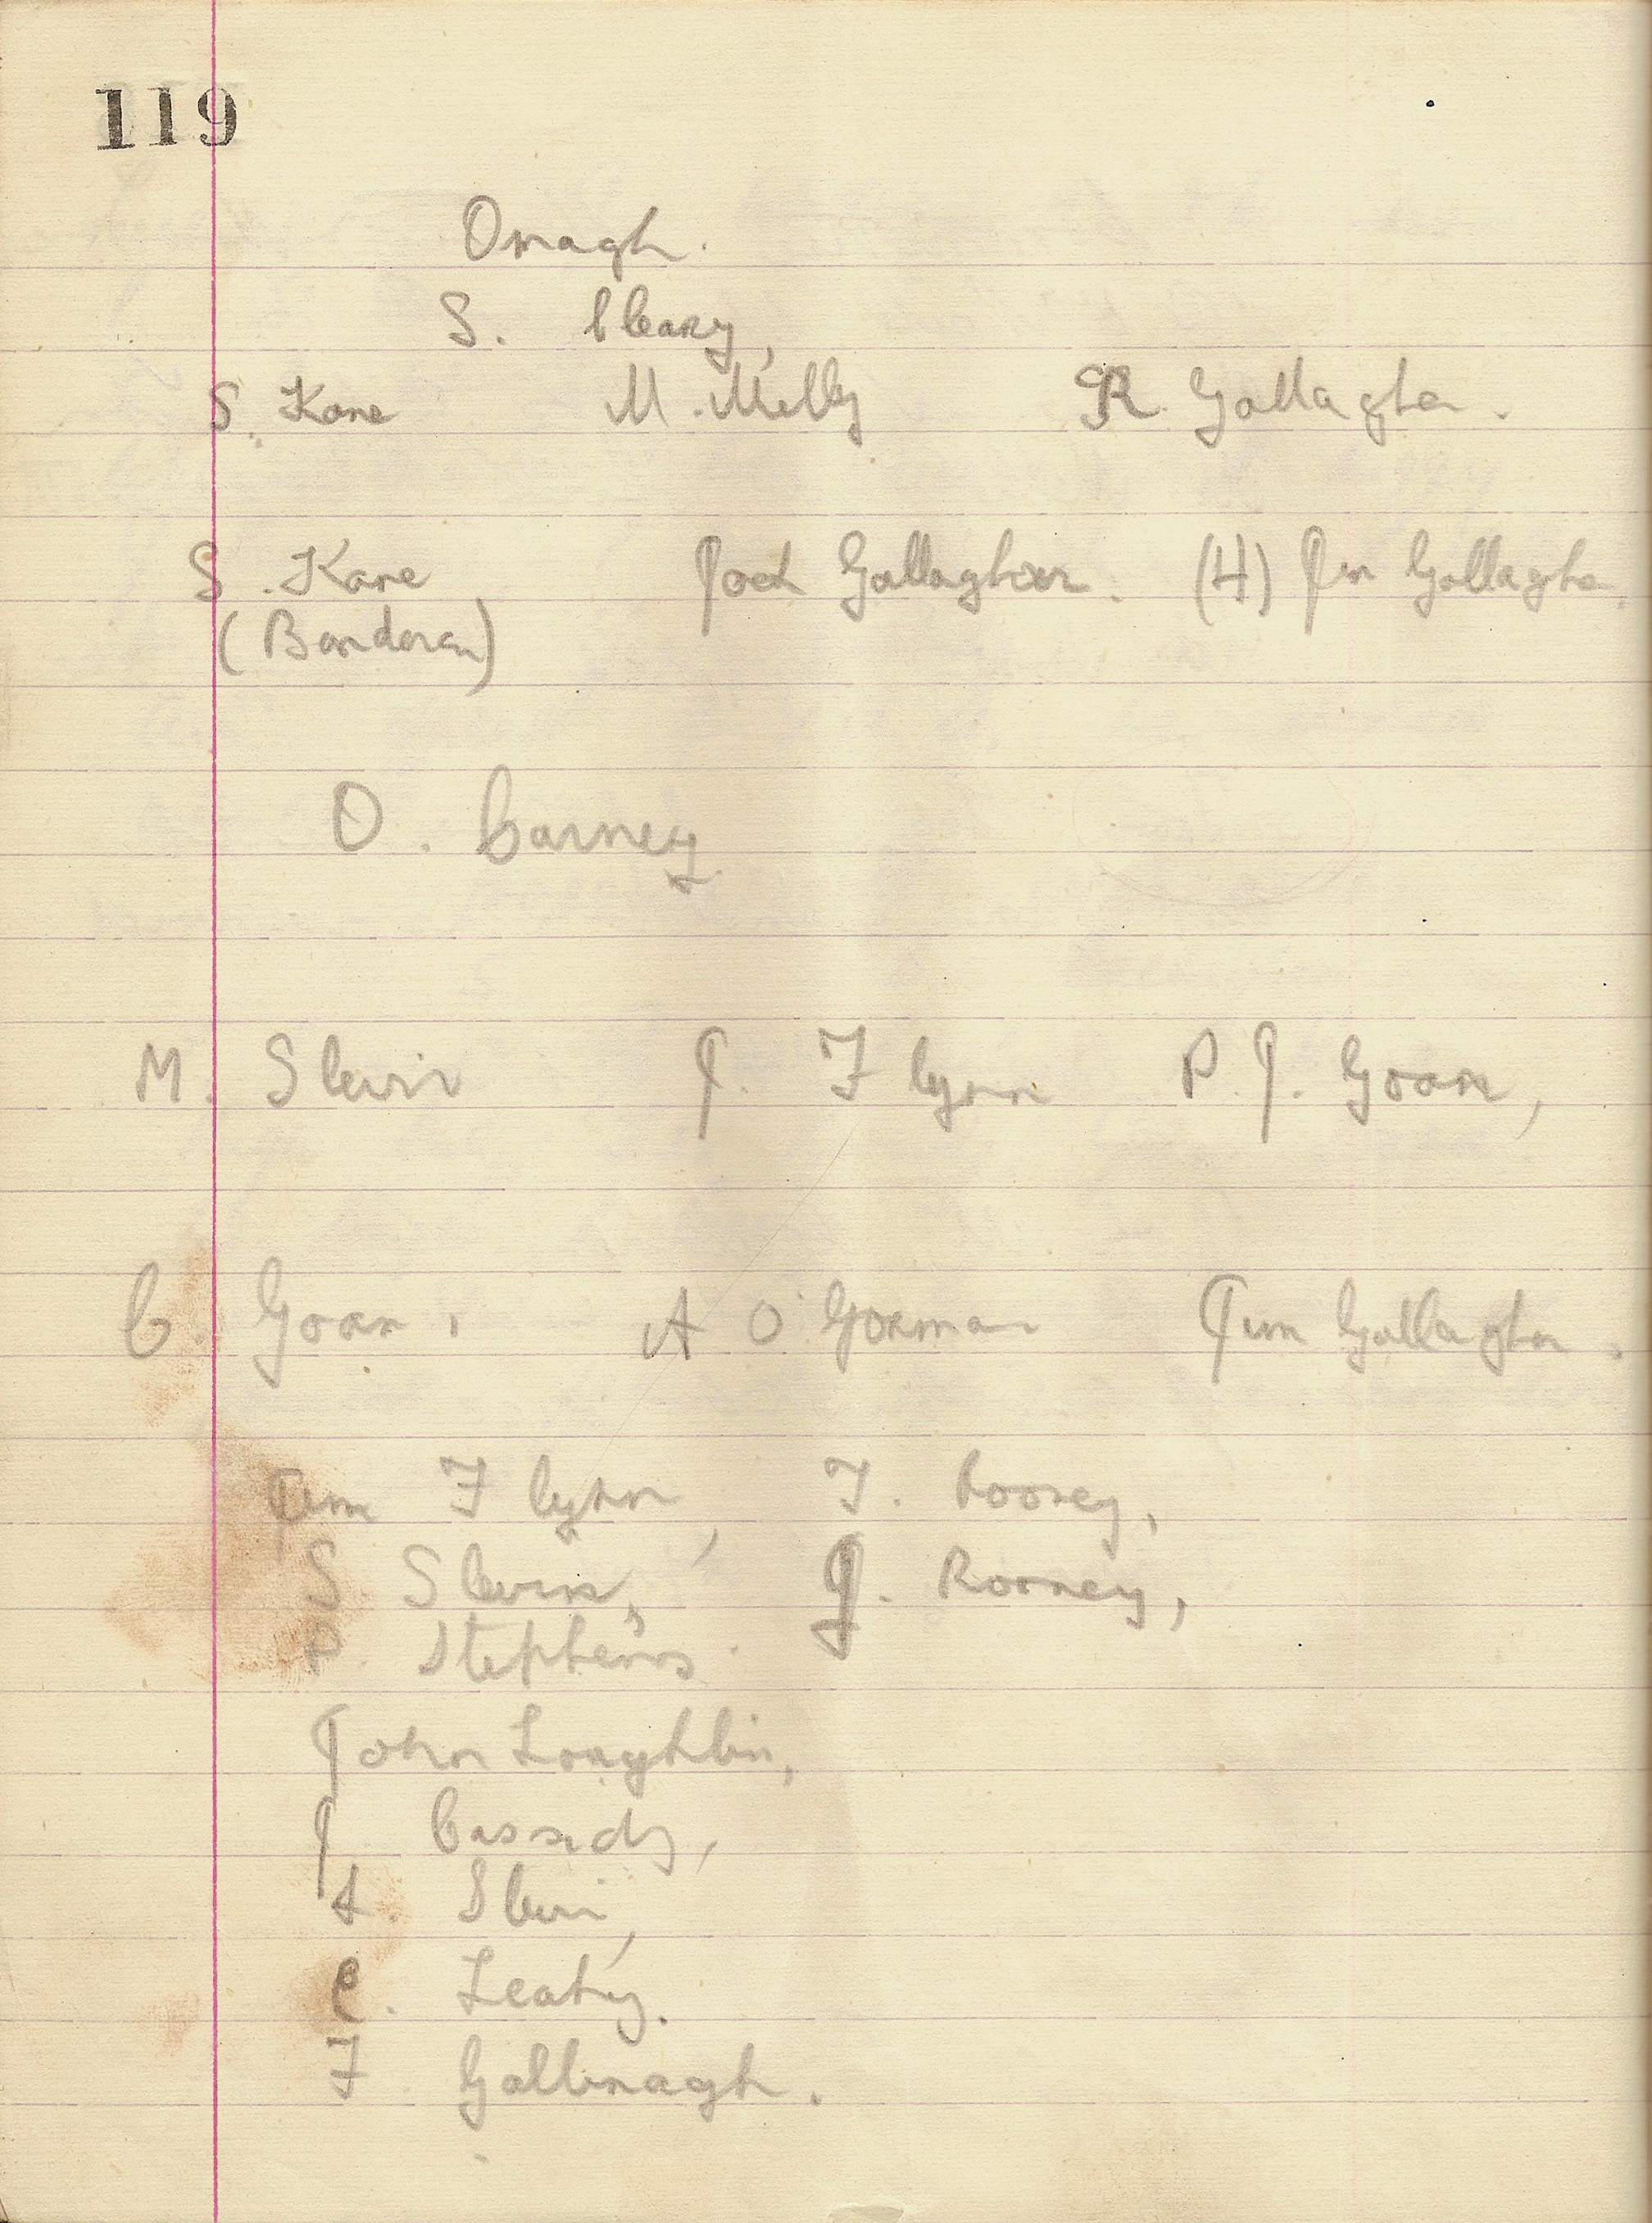 119
Omagh.
S. Cleary,
S. Kane M. Melly R. Gallagher.
S. Kane Jack Gallagher. (H) Jim Gallagher.
(Bundoran)
O. Carney
M. Slevin J. Flynn P. J. Goan,
C. Goan, A O'Gorman Jim Gallagher.
Jim Flynn, T. Rooney,
S. Slevin, J. Rooney,
P. Stephens.
John Loughlin,
J Cassidy,
L. Slevin,
C. Leahy.
F Gallinagh.